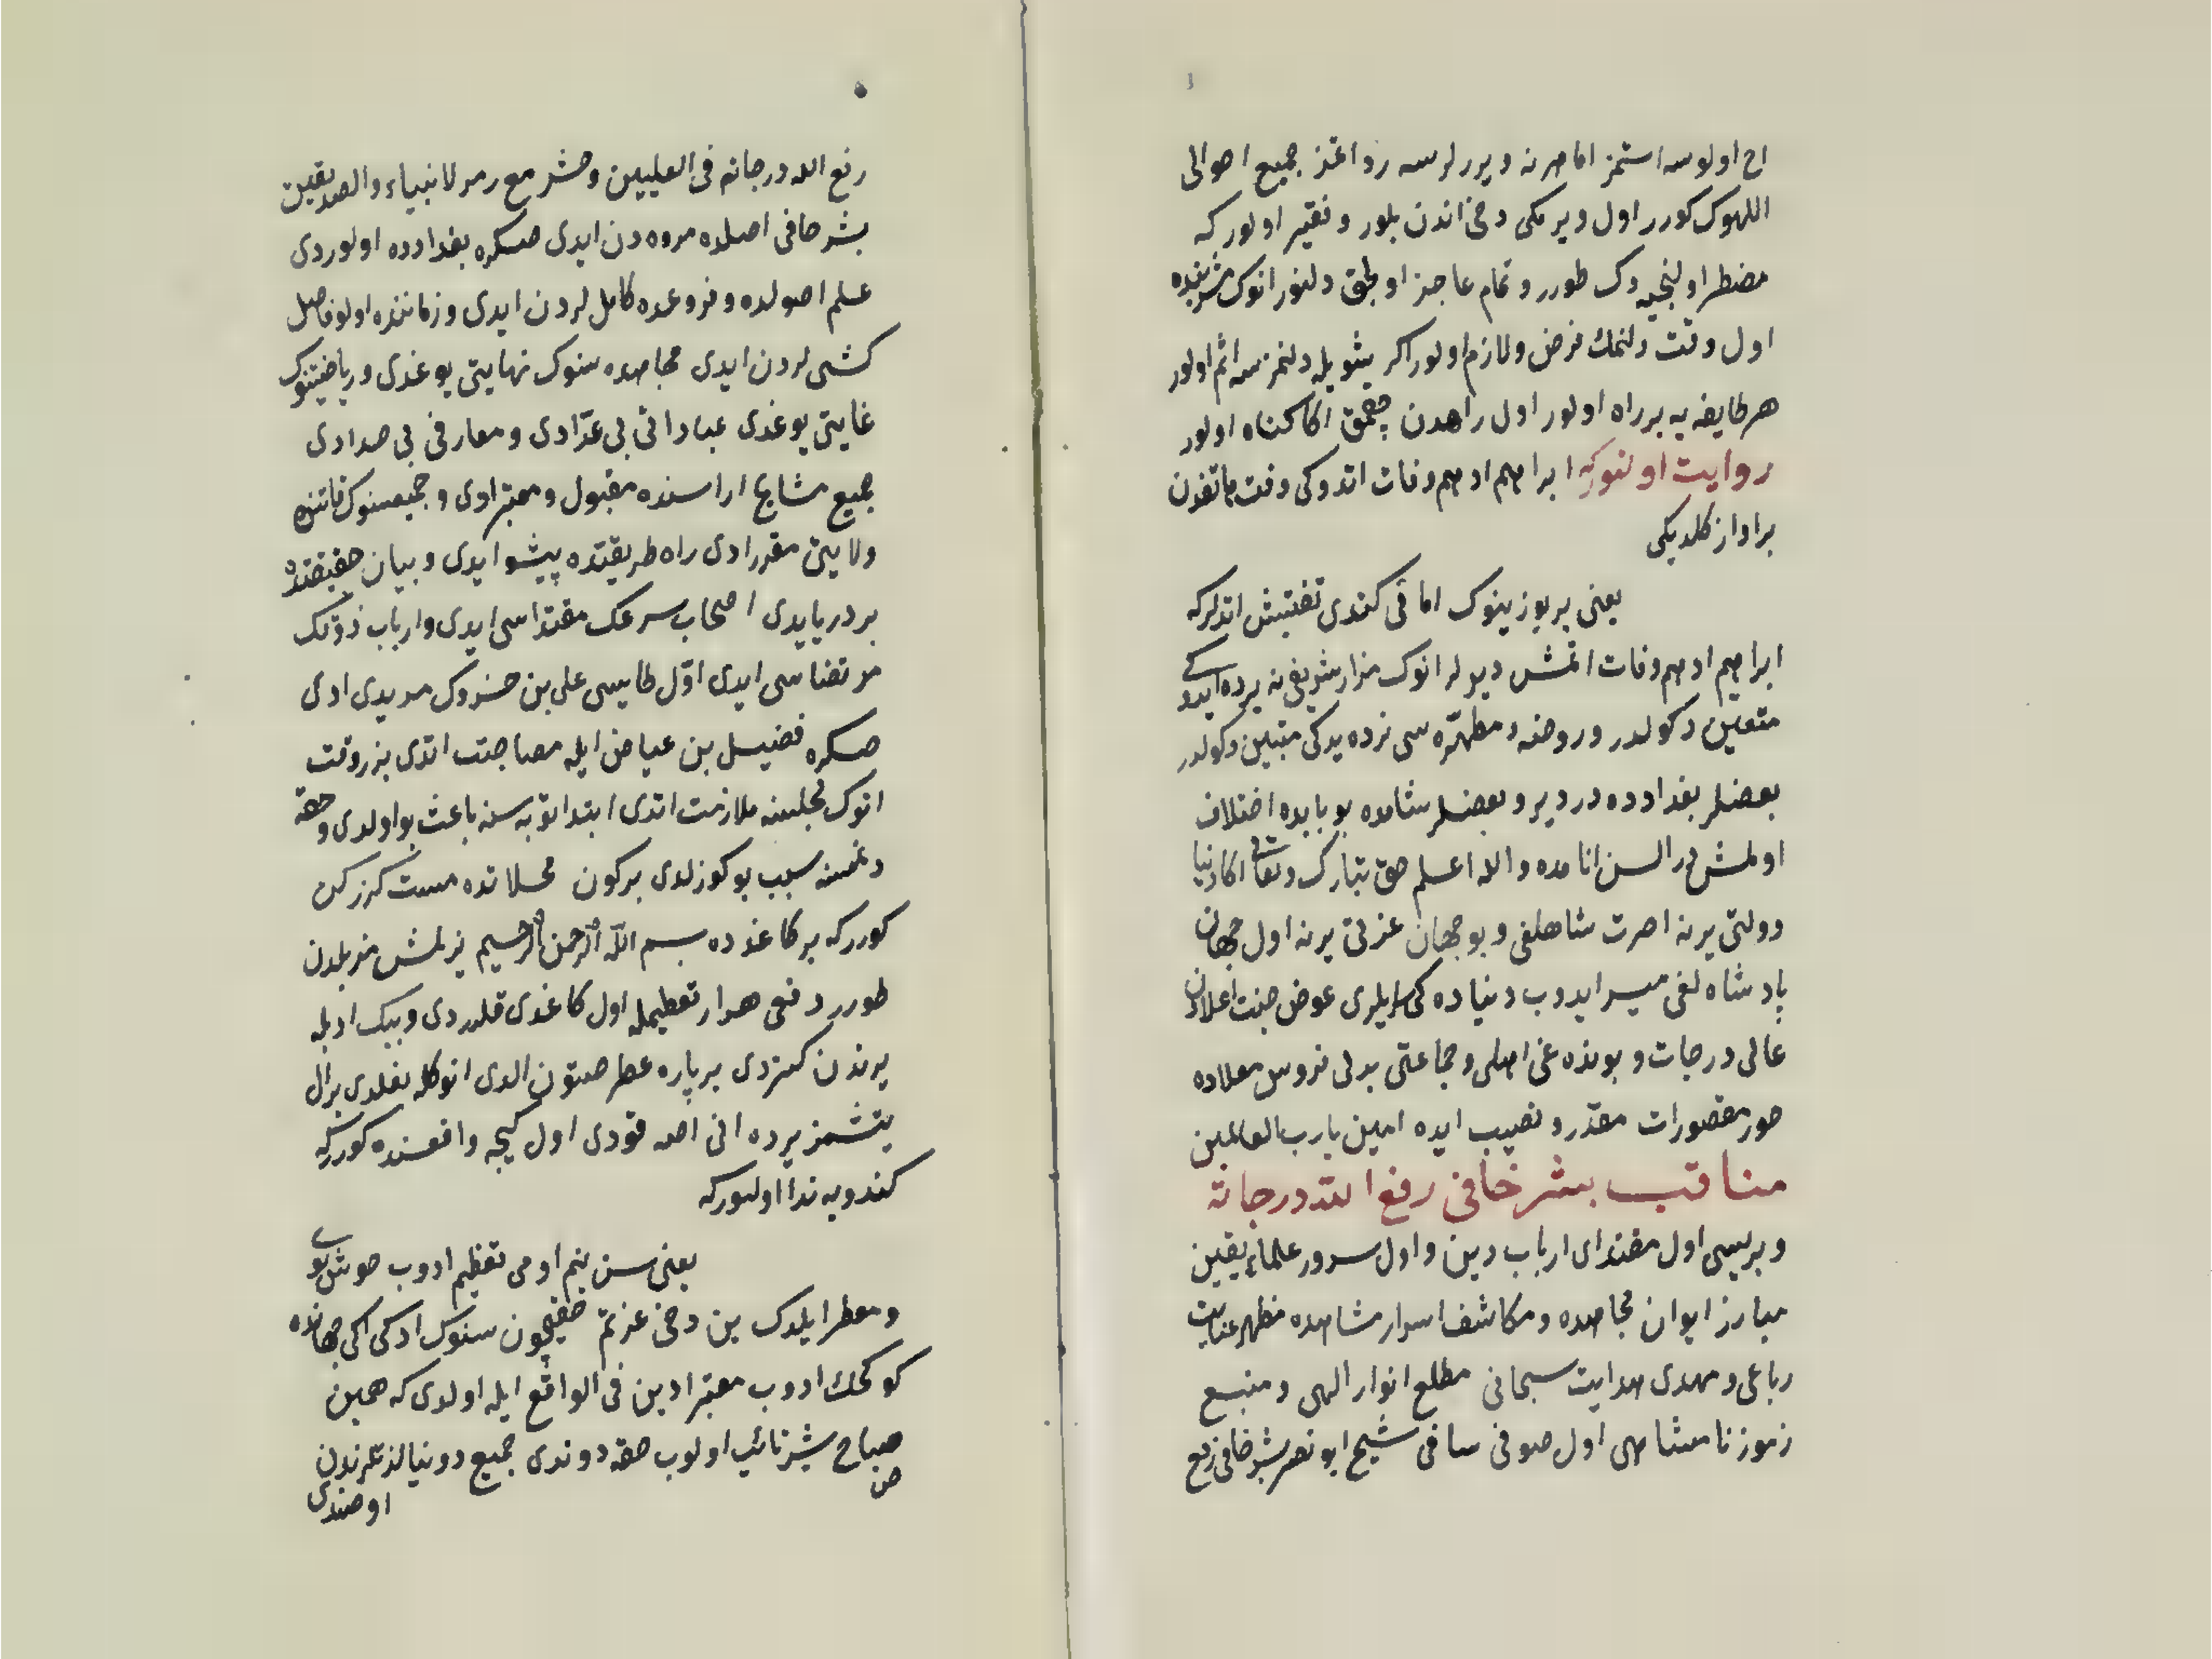 اج اولوسه استمز اما هر نه ويررلرسه رد اتمز جميع احوالى
اللهوك كورر اول ويرمكى دخى اندن بلور و فقير اولور كه
مضطر اولنجيه دك طورر و تمام عاجز اولجق دلنور انوك مشربنده
اول وقت دلنمك فرض ولازم اولور اكر بثويله دلنمزسه اثم اولور
هر طايفه يه بر راه اولور اول راهدن چقمق اكا كناه اولور
روايت اولنور كه ابراهيم ادهم وفات اتدوكى وقت هاتفدن
بر اواز كلديكى
يعنى ير يوزينوك امانى كندى تفتيش اتدلر كه
ابراهيم ادهم وفات اتمش ديولر انوك مزار شريفى نه يرده ايدوكى
متعين دكولدر و روضه ء مطهره سى نرده يدكى متبين دكولدر
بعضلر بغدادده در دير و بعضلر شامده بو بابده اختلاف
اولمش در السن انامده والله اعلم حق تبارك وتعالى اكا دنيا
دولتى يرنه اخرت شاهلغى و بو جهان عزتى يرنه اول جهان
پادشاه لغى ميسر ايدوب دنياده كى سرايلرى عوض جنت اعلادن
عالى درجات و بونده غى اهلى و جماعتى بدلى فردوس معلاده
حور مقصورات مقدر و نصيب ايده امين يارب العالمين
مناقب بشر خافى رفع الله درجاته
و بريسى اول مقتداى ارباب دين و اول سرور علماء يقين
مبارز ايوان مجاهده و مكاشف اسرار مشاهده مظهر عنايت
رباعى و مهدى هدايت سبحانى مطلع انوار الهى و منبع
رموز نامتناهى اول صوفى صافى شيخ ابو نصر بشر خافى رفع
رفع الله درجاته فى العليين وحشر مع زمر الانبياء والصديقين
بشر حافى اصلده مروه دن ايدى صكره بغدادده اولوردى
علم اصولده و فروعده كامللردن ايدى و زماننده اولو فاضل
كشىلردن ايدى مجاهده سنوك نهايتى يوغدى و رياضتنوك
غايتى يوغدى عباداتى بى عدّادى و معارفى بى حدادى
جميع مشايخ اراسنده مقبول و معتبرادى و جميعسنوك قاتنده
ولايتى مقررادى راه طريقتده پيشوا ايدى و بيان حقيقتده
بر درياييدى اصحاب سرعك مقتداسى ايدى و ارباب ذوقك
مرتضاسى ايدى اوّل طاييسى على بن خشروك مريدى ادى
صكره فضيل بن عياض ايله مصاحبت اتدى بر وقت
انوك مجلسنه ملازمت اتدى ابتدا توبه سنه باعث بو اولدى و حقه
دنمسنه سبب بو كوزلدى بر كون محلاتده مست كزركن
كورر كه بر كاغدده بسم الله الرحمن الرحيم يزلمش مزبلدن
طورر دفعى هزار تعظيمله اول كاغدى قلدردى و بيك ادبله
يرندن كتردى بر پاره عطر صتون الدى انوكله بغلدى بر ال
يتشمز يرده انى اصه قودى اول كيجه واقعسنده كورر كه
كندويه ندا اولنور كه
يعنى سن بنم اومى تعظيم ادوب خوش بوى
و معطر ايلدك بن دخى عزتم حقيچون سنوك ادكى اكى جهانده
كوكچك ادوب معتبر ادين فى الواقع ايله اولدى كه همين
صباح بشر تائب اولوب حقه دوندى جميع دونيا لذتلرندن
اوصندى